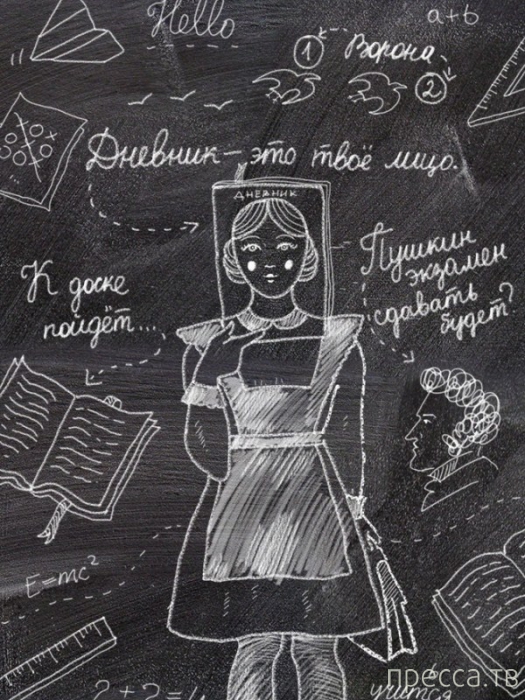 Hello
a+b
1
Ворона
2
Дневник – это твоё лицо.
ДНЕВНИК
Пушкин
экзамен
сдавать
будет?
К доске
пойдёт...
E=mc²
2+2=4
пресса.тв